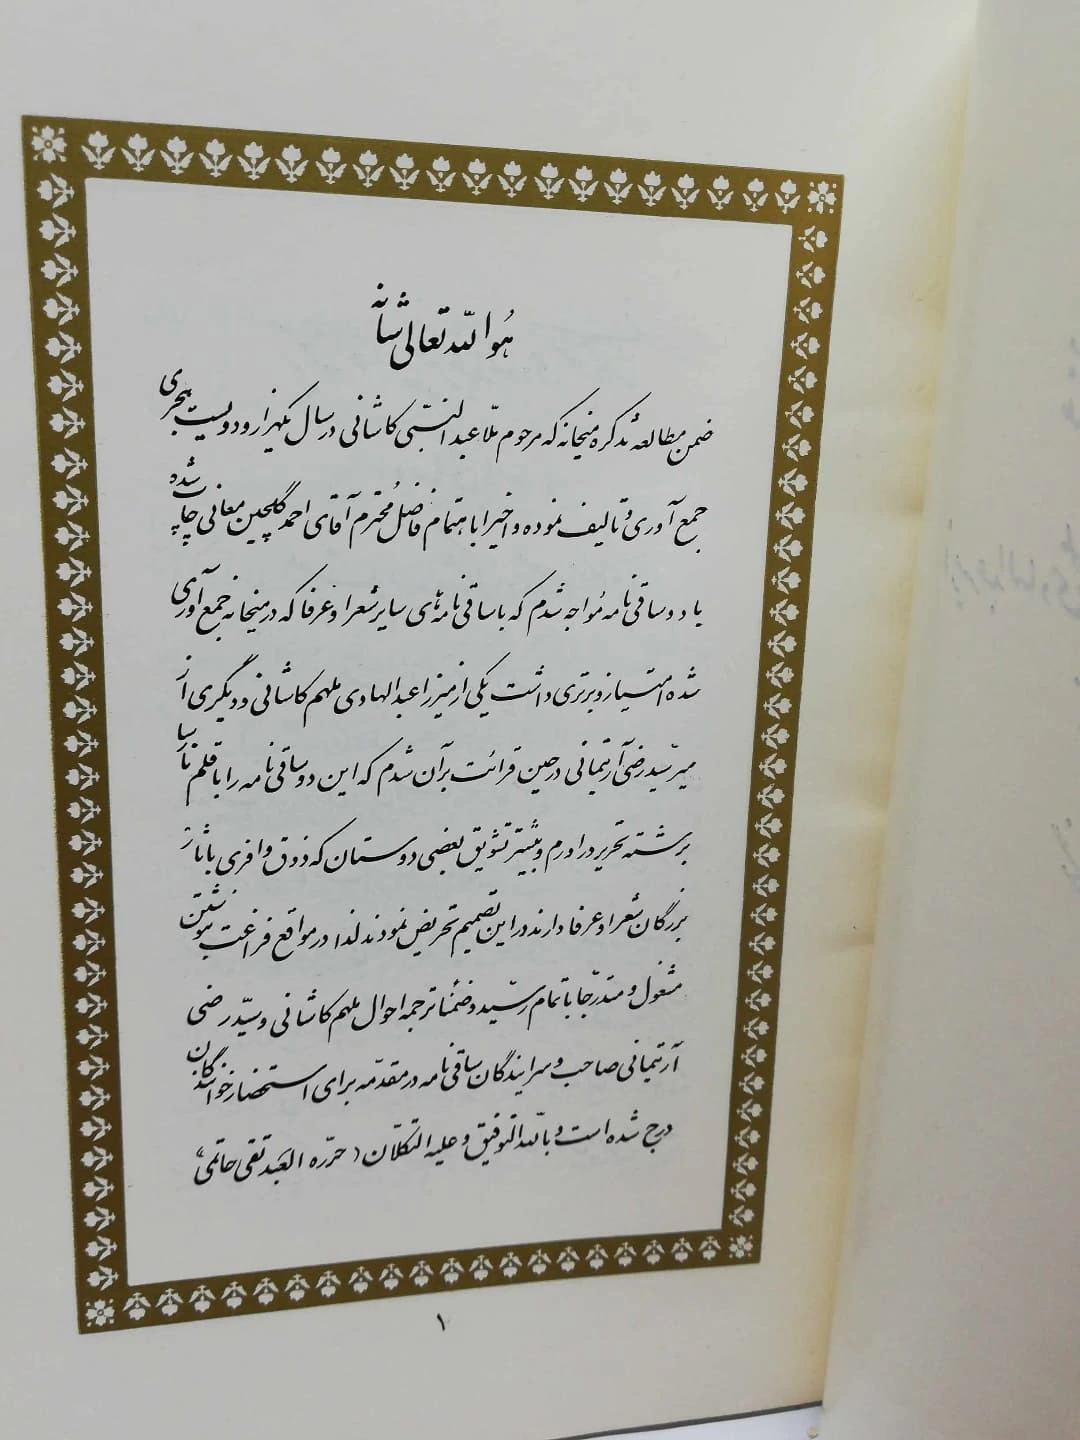 هُوَ اللّه تعالی شأنه
ضمن مطالعه تذکره میخانه که مرحوم ملّا عبدالنبّی کاشانی در سال یکهزار و دویست هجری
جمع آوری و تالیف نموده و اخیرا باهتمام فاضل مُحترم آقای احمد گلچین معانی چاپ شده
با دو ساقی نامه مُواجه شدم که با ساقی نامه های سایر شعرا و عُرفا که در میخانه جمع آوری
شده امتیاز و برتری داشت یکی از میرزا عبدالهادی ملهم کاشانی و دیگری از
میر سیّد رضی آرتیمانی در حین قرائت بر آن شدم که این دو ساقی نامه را با قلم نارسا
برشته تحریر درآورم و بیشتر تشویق بعضی دوستان که ذوق وافری باثار
بزرگان شعرا و عرفا دارند در این تصمیم تحریض نمودند لذا در مواقع فراغت بنوشتن
مشغول و متدرّجا باتمام رسید و ضمنا ترجمه احوال ملهم کاشانی و سیّد رضی
آرتیمانی صاحب و سرایندگان ساقی نامه در مقدّمه برای استحضار خوانندگان
درج شده است و باللّه التوفیق و علیه التکلان (حرّره العَبد تقی حاتمی)
۱